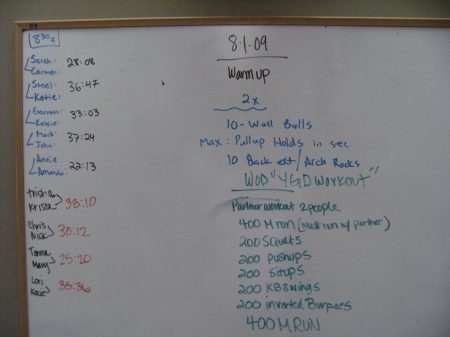 8:30a
Sarah:
Carmen: 28:08
Steel:
Katie: 36:47
Garrett:
Kelsie: 33:03
Mark:
John: 37:24
Annie
Amanda: 22:13
Trisha
Krista 38:10
Chris
Nick 30:12
Mary 25:20
Lori
Katie 35:36
8.1.09
Warm up
2x
10 - Wall Balls
Max: Pullup Holds in sec
10 Back ext / Arch Rocks
WOD "YGD Workout"
Partner workout 2 people
400 M run (must run w/ partner)
200 Squats
200 pushups
200 situps
200 KB Swings
200 inverted Burpees
400 M RUN